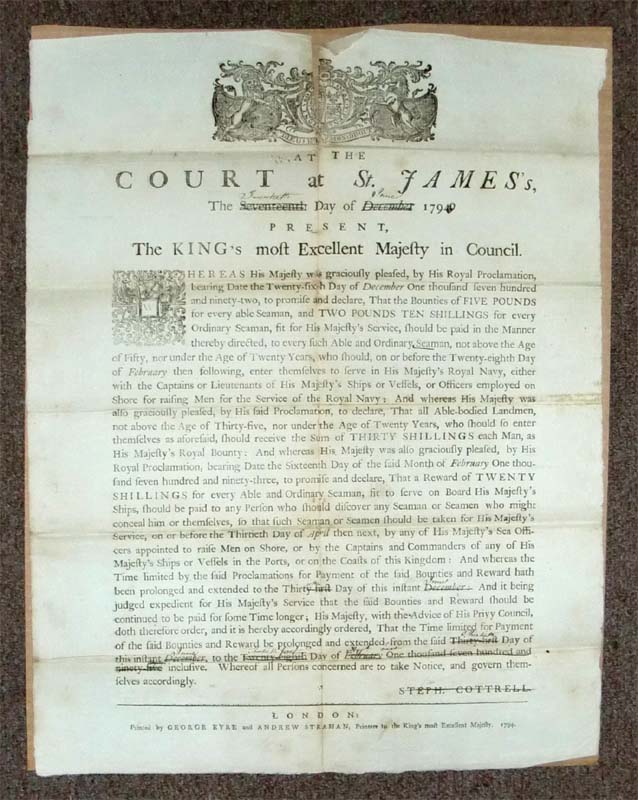 AT THE
COURT at St. JAMES's,
Twentieth June
The Seventeenth Day of December 1794
PRESENT,
The KING's moſt Excellent Majeſty in Council.
WHEREAS His Majeſty was graciouſly pleaſed, by His Royal Proclamation,
bearing Date the Twenty-ſixth Day of December One thouſand ſeven hundred
and ninety-two, to promiſe and declare, That the Bounties of FIVE POUNDS
for every able Seaman, and TWO POUNDS TEN SHILLINGS for every
Ordinary Seaman, fit for His Majeſty's Service, ſhould be paid in the Manner
thereby directed, to every ſuch Able and Ordinary Seaman, not above the Age
of Fifty, nor under the Age of Twenty Years, who ſhould, on or before the Twenty-eighth Day
of February then following, enter themſelves to ſerve in His Majeſty's Royal Navy, either
with the Captains or Lieutenants of His Majeſty's Ships or Veſſels, or Officers employed on
Shore for raiſing Men for the Service of the Royal Navy: And whereas His Majeſty was
alſo graciouſly pleaſed, by His ſaid Proclamation, to declare, That all Able-bodied Landmen,
not above the Age of Thirty-five, nor under the Age of Twenty Years, who ſhould ſo enter
themſelves as aforeſaid, ſhould receive the Sum of THIRTY SHILLINGS each Man, as
His Majeſty's Royal Bounty: And whereas His Majeſty was alſo graciouſly pleaſed, by His
Royal Proclamation, bearing Date the Sixteenth Day of the ſaid Month of February One thou-
ſand ſeven hundred and ninety-three, to promiſe and declare, That a Reward of TWENTY
SHILLINGS for every Able and Ordinary Seaman, fit to ſerve on Board His Majeſty's
Ships, ſhould be paid to any Perſon who ſhould diſcover any Seaman or Seamen who might
conceal him or themſelves, ſo that ſuch Seaman or Seamen ſhould be taken for His Majeſty's
Service, on or before the Thirtieth Day of April then next, by any of His Majeſty's Sea Offi-
cers appointed to raiſe Men on Shore, or by the Captains and Commanders of any of His
Majeſty's Ships or Veſſels in the Ports, or on the Coaſts of this Kingdom: And whereas the
Time limited by the ſaid Proclamations for Payment of the ſaid Bounties and Reward hath
been prolonged and extended to the Thirty-firſt Day of this inſtant December: And it being
judged expedient for His Majeſty's Service that the ſaid Bounties and Reward ſhould be
continued to be paid for ſome Time longer; His Majeſty, with the Advice of His Privy Council,
doth therefore order, and it is hereby accordingly ordered, That the Time limited for Payment
of the ſaid Bounties and Reward be prolonged and extended from the ſaid Thirty-firſt Day of
this inſtant December, to the Twenty Eighth Day of February One thouſand ſeven hundred and
ninety-five incluſive. Whereof all Perſons concerned are to take Notice, and govern them-
ſelves accordingly.
STEPH. COTTRELL.
LONDON:
Printed by GEORGE EYRE and ANDREW STRAHAN, Printers to the King's moſt Excellent Majeſty. 1794.